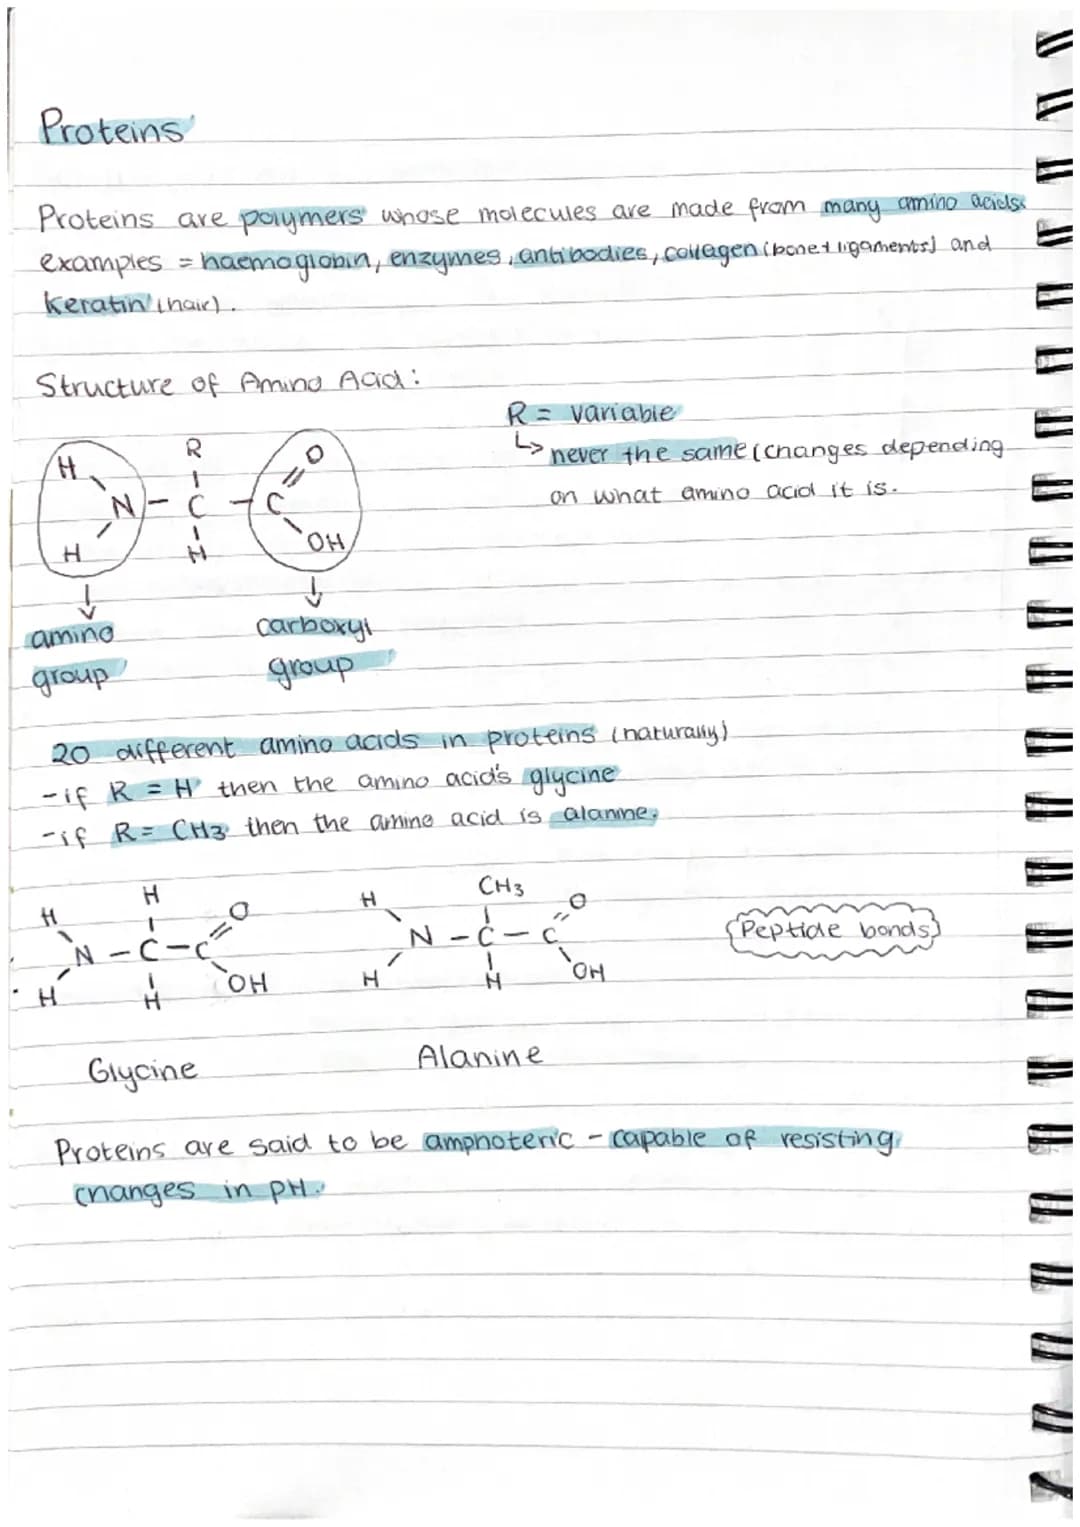 Proteins
Proteins are polymers whose molecules are made from many amino acids.
examples = haemoglobin, enzymes, antibodies, collagen (bone + ligaments) and
keratin (hair).
Structure of Amino Acid:
R = variable
↳ never the same (changes depending
on what amino acid it is.
H R O
N - C - C
H H OH
amino carboxyl
group group
20 different amino acids in proteins (naturally)
- if R = H then the amino acid's glycine
- if R = CH3 then the amino acid is alanine.
H H O H CH3 O
N - C - C N - C - C Peptide bonds
H H OH H H OH
Glycine Alanine
Proteins are said to be amphoteric - capable of resisting
changes in pH.